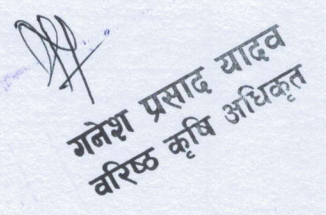 गनेश प्रसाद यादव
वरिष्ठ कृषि अधिकृत